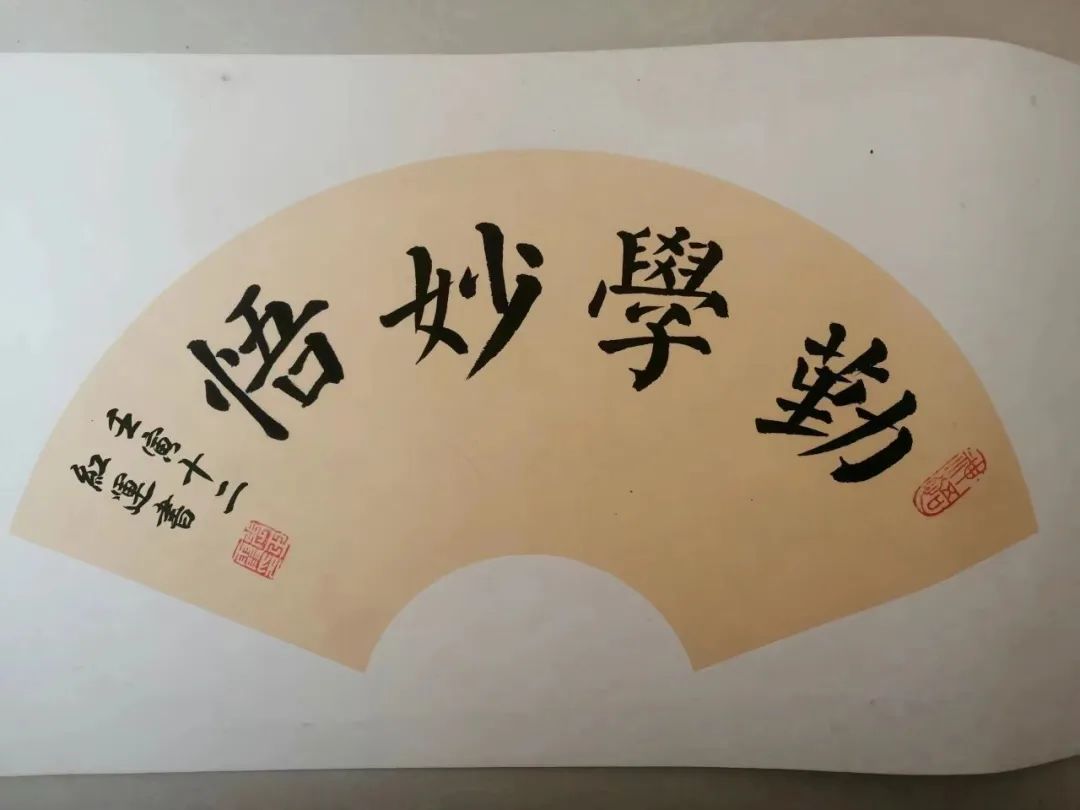 勤學妙悟
壬寅十二
紅運書